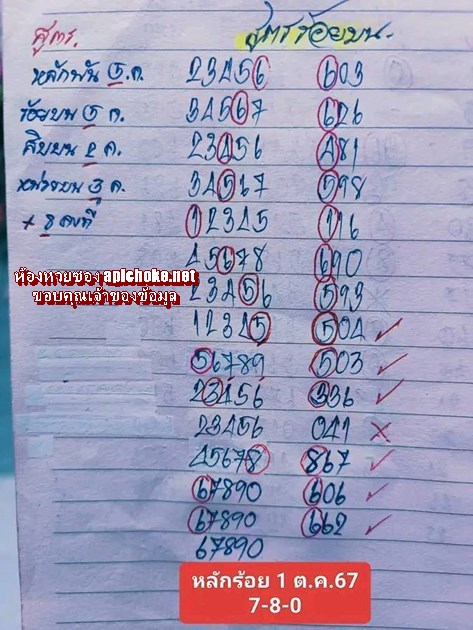 สูตร. สูตรร้อยบน.
หลักพัน 5 ค. 23456 603
ร้อยบน 5 ค. 34567 626
สิบบน 2 ค. 23456 481
หน่วยบน 3 ค. 34567 598
+ 8 คงที่ 12345 116
45678 690
ห้องหวยซอง apichoke.net
ขอบคุณเจ้าของข้อมูล
23456 593
12345 504 ✓
56789 503 ✓
23456 336 ✓
23456 041 ✗
45678 867 ✓
67890 606 ✓
67890 662 ✓
67890
หลักร้อย 1 ต.ค.67
7-8-0